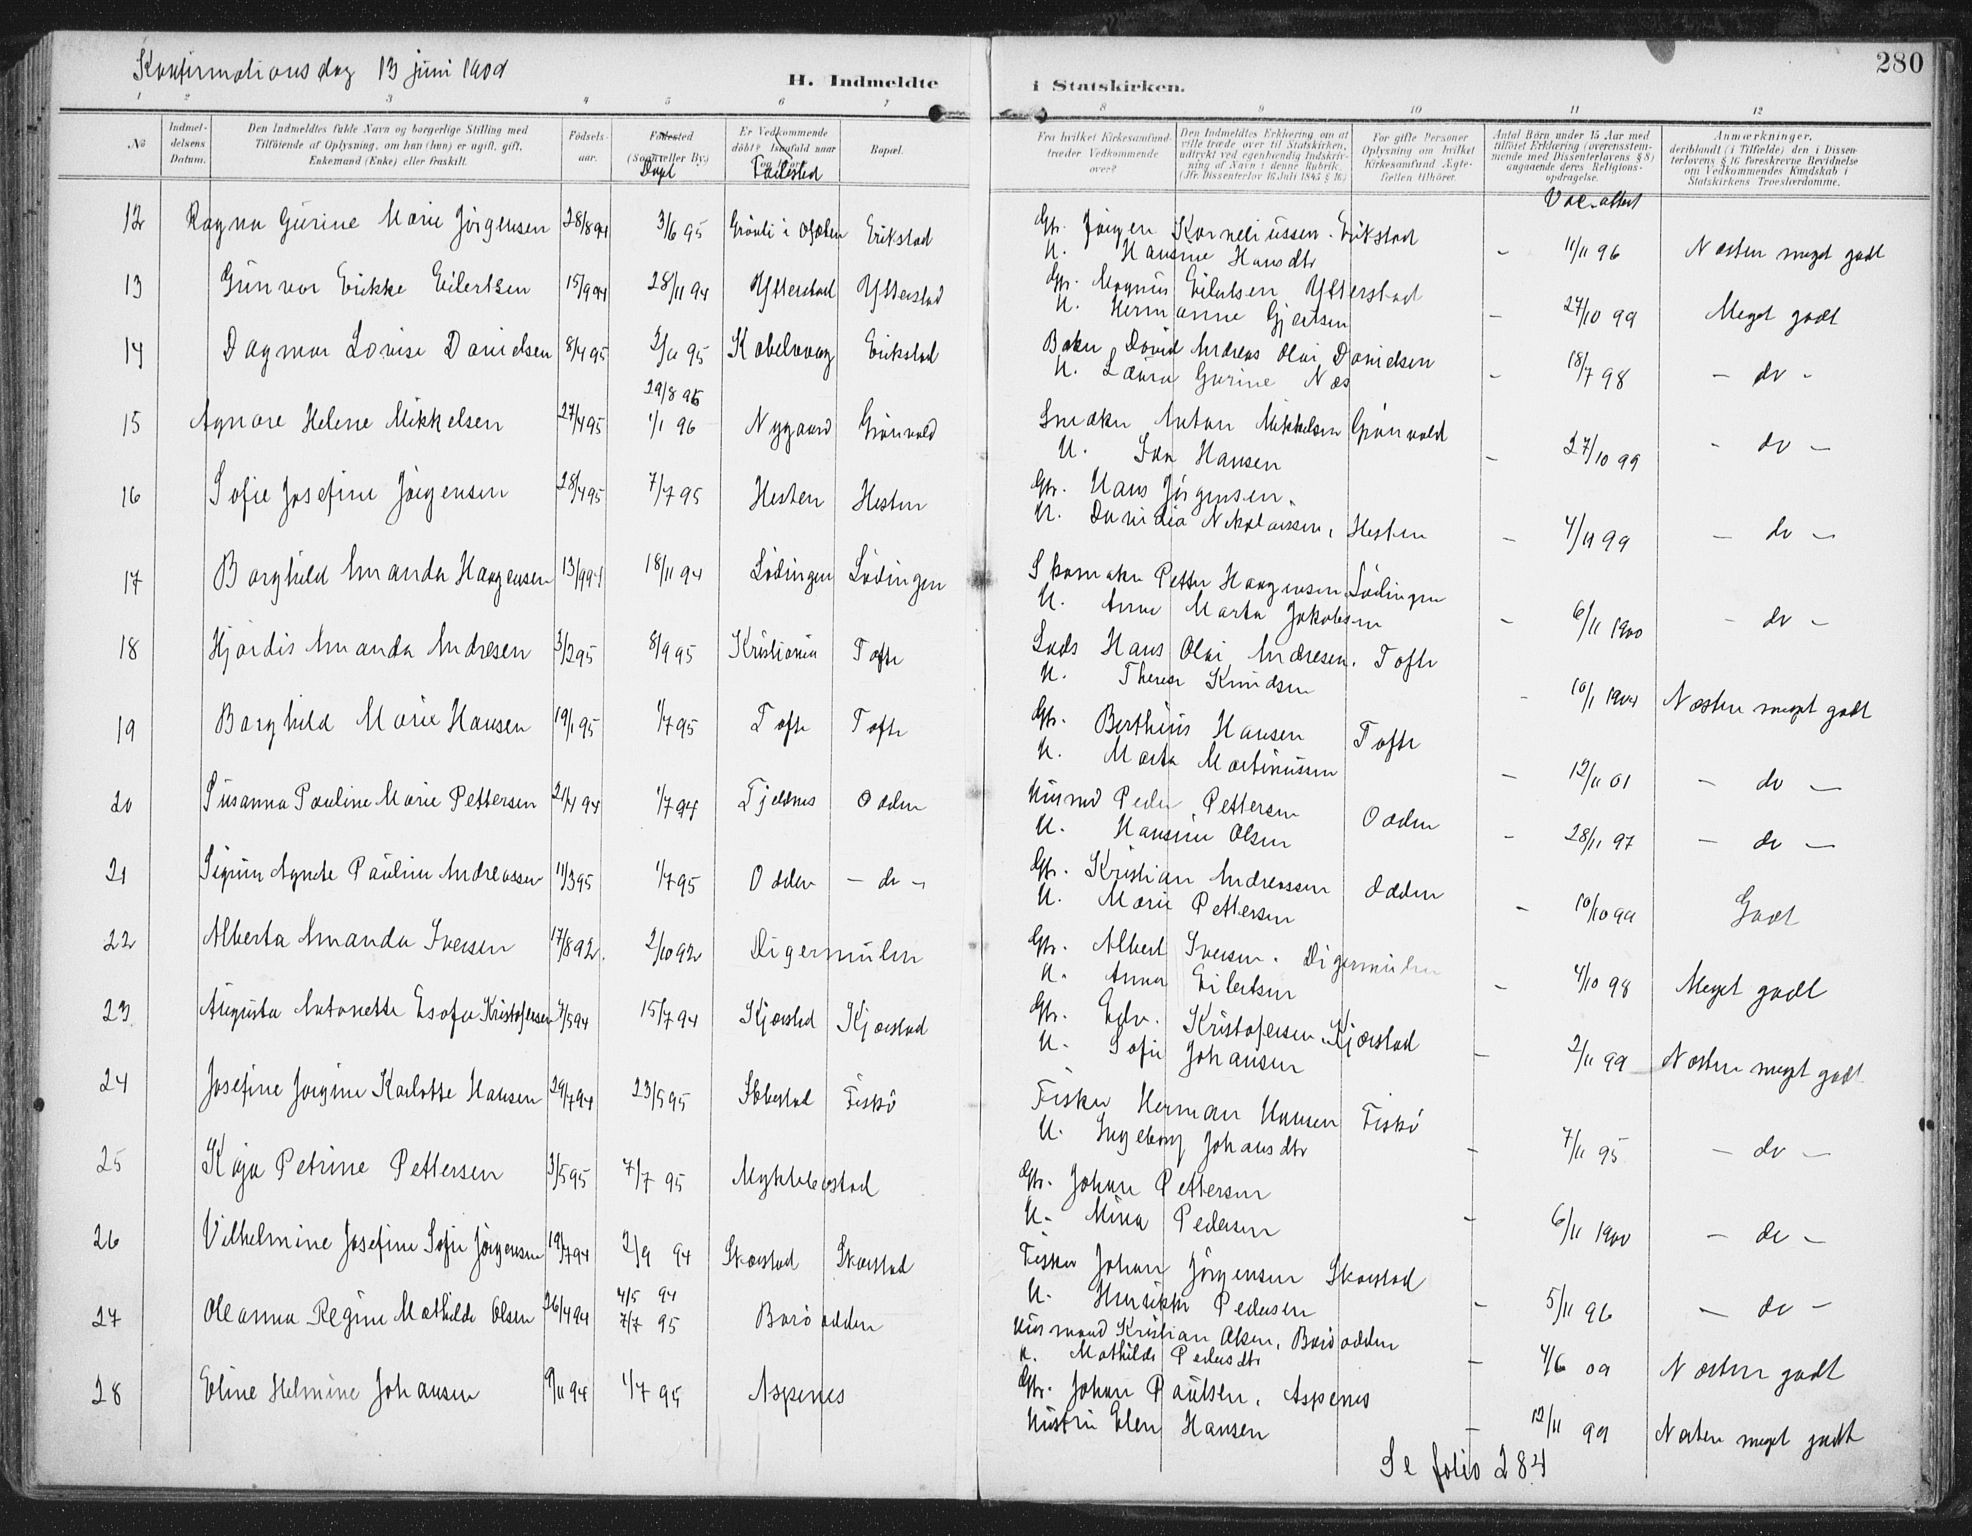 Konfirmationsdag 13 juni 1909
H. Indmeldte i Statskirken.
280
1 2 3 4 5 6 7 8 9 10 11 12
No
Indmeldelsens Datum.
Den Indmeldtes fulde Navn og borgerlige Stilling med Tilføiende af Oplysning, om han (hun) er ugift, gift, Enkemand (Enke) eller fraskilt.
Fødselsaar.
Fødested (Sogn eller By.)
Døpt
Er Vedkommende døbt? Isaafald naar og hvor?
Fødested
Bopæl.
Fra hvilket Kirkesamfund træder Vedkommende over?
Den Indmeldtes Erklæring om at ville træde over til Statskirken, udtrykt ved egenhændig Indskrivning af Navn i denne Rubrik. (Jfr. Dissenterlov 16 Juli 1845 § 16)
For gifte Personer Oplysning om hvilket Kirkesamfund Ægtefællen tilhører.
Antal Børn under 15 Aar med tilføiet Erklæring (overensstemmende med Dissenterlovens § 8) angaaende deres Religionsopdragelse.
Vac.attest
Anmærkninger, deriblandt (i Tilfælde) den i Dissenterlovens § 16 foreskrevne Bevidnelse om Vedkommendes Kundskab i Statskirkens Troeslærdomme.
12 Ragna Gurine Marie Jörgensen 28/8 94 3/6 95 Grönli i Ofoten Erikstad Gbr. Jörgen Korneliussen. Erikstad
H. Hansine Hansdtr - 11/11 96 Næsten meget godt
13 Gunvor Erikke Eilertsen 15/9 94 28/11 94 Ytterstad Ytterstad Gbr. Magnus Eilertsen Ytterstad
H. Hermanne Gjertsen - 27/10 99 Meget godt
14 Dagmar Lovise Danielsen 8/4 95 2/11 95 Kabelvaag Erikstad Baker David Andreas Olai Danielsen
H. Laura Gurine Næs - 18/7 98 - do -
15 Agnore Helene Mikkelsen 27/4 95 29/8 95 1/1 96 Nygaard Grönvold Snedker Anton Mikkelsen Grönvold
H. Ida Hansen - 27/10 99 - do -
16 Sofie Josefine Jörgensen 28/4 95 7/7 95 Hesten Hesten Gbr. Hans Jörgensen.
H. Davidia Nikolaissen, Hesten - 4/11 99 - do -
17 Borghild Amanda Haagensen 13/9 94 18/11 94 Lödingen Lödingen Skomaker Petter Haagensen Lödingen
H. Anna Marta Jakobsen - 6/11 1900 - do -
18 Hjördis Amanda Andresen 3/2 95 8/9 95 Kristiania Tofte Lods Hans Olai Andresen. Tofte
H. Therese Knudsen - 10/1 1904 Næsten meget godt
19 Borghild Marie Hansen 19/1 95 1/7 95 Tofte Tofte Gbr. Berthius Hansen Tofte
H. Marta Martinussen - 12/11 01 - do -
20 Susanna Pauline Marie Pettersen 21/4 94 1/7 94 Fjeldnes Odden Husmd Peder Pettersen Odden
H. Hansine Olsen - 28/11 97 - do -
21 Sigrun Agnete Pauline Andreassen 11/3 95 1/7 95 Odden - do - Gbr. Kristian Andreassen Odden
H. Marie Pettersen - 10/10 99 Godt
22 Alberta Amanda Iversen 17/8 92. 2/10 92 Digermulen Gbr. Albert Iversen. Digermulen
H. Anna Eilertsen - 4/10 98 Meget godt
23 Augusta Antonette Esofie Kristofersen 4/5 94 15/7 94 Kjærstad Kjærstad Gbr. Edv. Kristofersen Kjærstad
H. Sofie Johansen - 2/11 99 Næsten meget godt
24 Josefine Jorgine Karlotte Hansen 29/7 94 23/5 95 Sæbestad Fiskö Fisker Herman Hansen Fiskö
H. Ingeborg Johansdtr - 7/11 95 - do -
25 Kaja Petrine Pettersen 3/5 95 7/7 95 Myklebostad Gbr. Johan Pettersen
H. Mina Pedersen - 6/11 1900 - do -
26 Vilhelmine Josefine Sofie Jörgensen 19/7 94 2/9 94 Skarstad Skarstad Fisker Johan Jörgensen Skarstad
H. Henrikke Pedersen - 5/11 96 - do -
27 Oleanna Regine Mathilde Olsen 26/4 94 4/5 94 7/7 95 Baröodden Husmand Kristian Olsen, Baröodden
H. Mathilde Pedersdtr - 4/6 09 Næsten godt
28 Eline Helmine Johansen 9/11 94 1/7 95 Aspenes Gbr. Johan Paulsen, Aspenes
Hustru Elen Hansen - 12/11 99 Næsten meget godt
Se folio 284